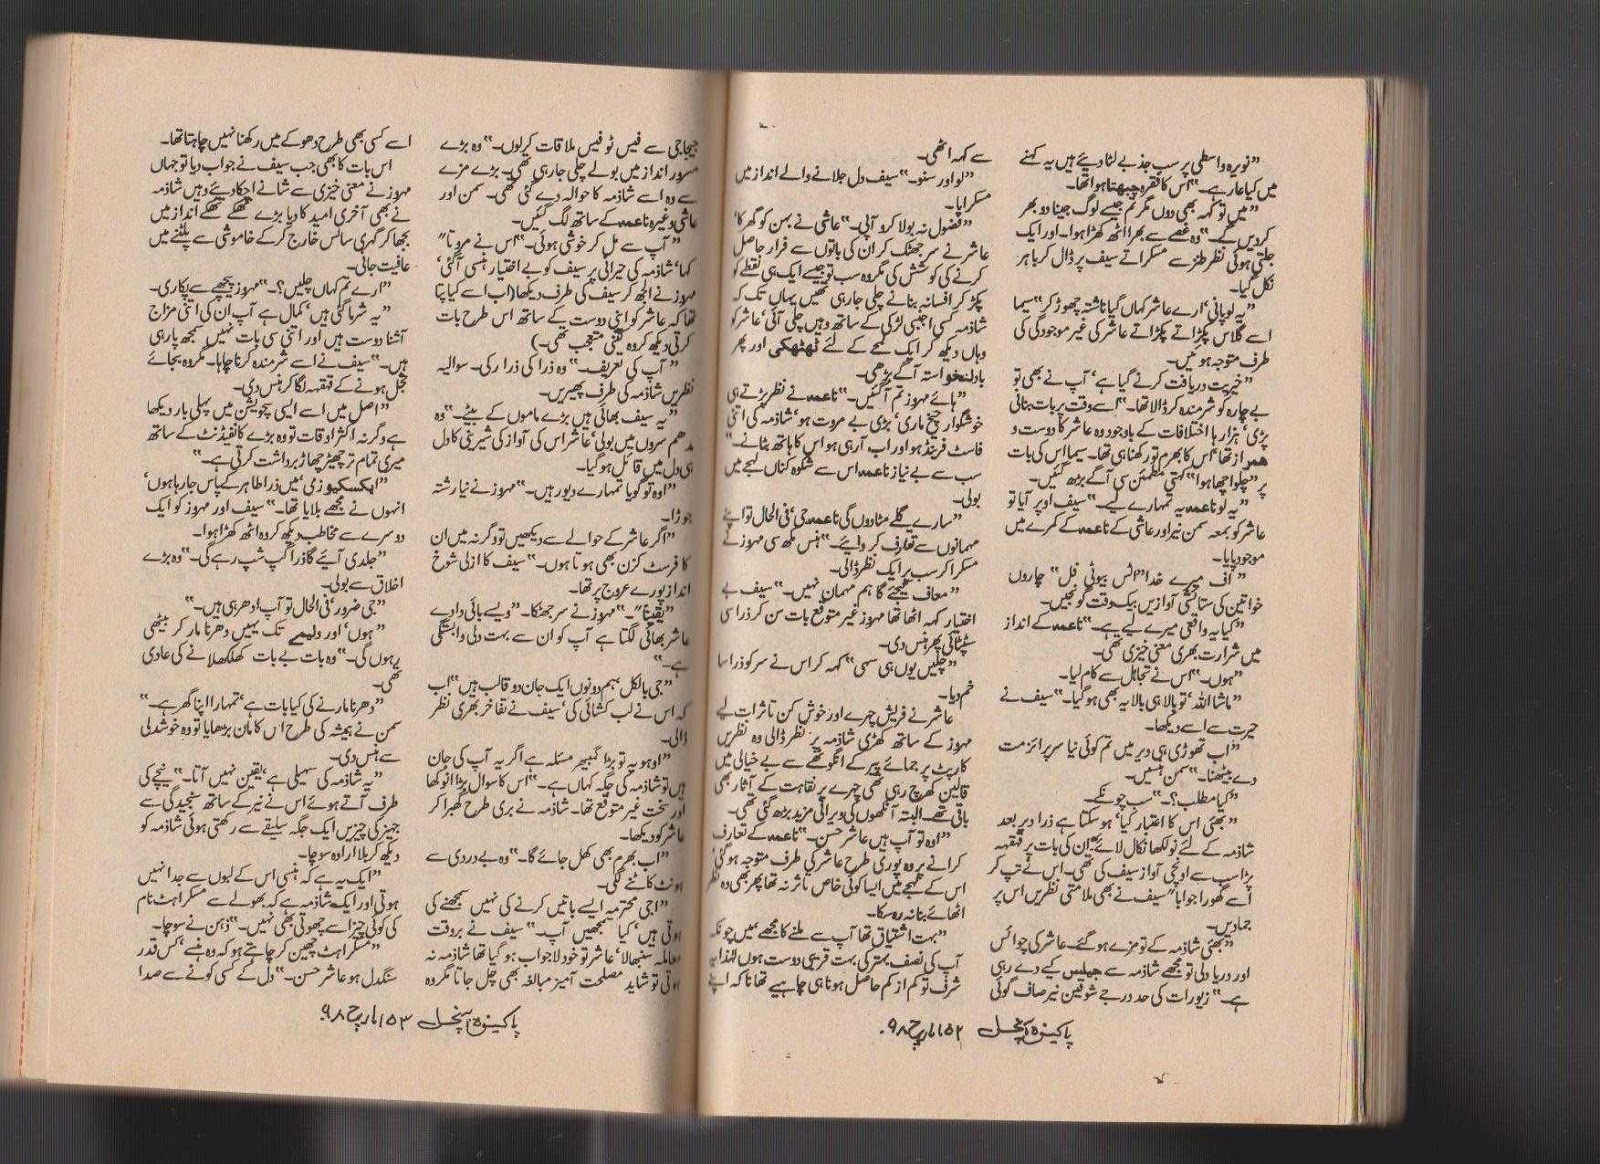 ”نویرہ واسطی پر سب جذبے لٹا دیئے ہیں یہ کہنے
میں کیا عار ہے۔“ اس کا فقرہ چبھتا ہوا تھا۔
”میں تو کہہ بھی دوں مگر تم جیسے لوگ جینا دوبھر
کردیں گے۔“ وہ غصے سے بھرا اٹھ کھڑا ہوا۔ اور ایک
جلتی ہوئی نظر طنز سے مسکراتے سیف پر ڈال کر باہر
نکل گیا۔
”یہ لو پانی‘ ارے عاشر کہاں گیا ناشتہ چھوڑ کر“ سیما
اسے گلاس پکڑاتے پکڑاتے عاشر کی غیر موجودگی کی
طرف متوجہ ہوئیں۔
”خیریت دریافت کرنے گیا ہے‘ آپ نے بھی تو
بے چارہ کو شرمندہ کر ڈالا تھا۔“ اسے وقت پر بات بنانی
پڑی‘ ہزارہا اختلافات کے باوجود وہ عاشر کا دوست و
ہمراز تھا‘ اس کا بھرم تو رکھنا ہی تھا۔ سیما اس کی بات
پر ”چلو اچھا ہوا“ کہتی مطمئن سی آگے بڑھ گئیں۔
”یہ لو ناعمہ یہ تمہارے لیے۔“ سیف اوپر آیا تو
عاشر کو بمعہ سمن نیر اور عاشی کے ناعمہ کے کمرے میں
موجود پایا۔
”اف میرے خدا“ ”اٹس بیوٹی فل“ چاروں
خواتین کی ستائشی آوازیں بیک وقت گونجیں۔
”کیا یہ واقعی میرے لیے ہے۔“ ناعمہ کے انداز
میں شرارت بھری معنی خیزی تھی۔
”ہوں۔“ اس نے تجاہل سے کام لیا۔
”ماشا اللہ‘ تو بالا ہی بالا یہ بھی ہو گیا۔“ سیف نے
حیرت سے اسے دیکھا۔
”اب تھوڑی ہی دیر میں تم کوئی نیا سرپرائز مت
دے بیٹھنا۔“ سمن ہنسیں۔
”کیا مطلب؟۔“ سب چونکے۔
”بھئی اس کا اعتبار کیا‘ ہو سکتا ہے ذرا دیر بعد
شاذمہ کے لئے نولکھا نکال لائے۔“ ان کی بات پر قہقہہ
پڑا سب سے اونچی آواز سیف کی تھی۔ اس نے تپ کر
اسے گھورا جواباً“ سیف نے بھی ملامتی نظریں اس پر
جمادیں۔
”بھئی شاذمہ کے تو مزے ہو گئے۔ عاشر کی چوائس
اور دریا دلی تو مجھے شاذمہ سے جیلس کیے دے رہی
ہے۔“ زیورات کی حد درجے شوقین نیر صاف گوئی
سے کہہ اٹھی۔
”لو اور سنو۔“ سیف دل جلانے والے انداز میں
مسکرایا۔
”فضول نہ بولا کرو آپی۔“ عاشی نے بہن کو گھرکا‘
عاشر نے سر جھٹک کر ان کی باتوں سے فرار حاصل
کرنے کی کوشش کی مگر وہ سب تو جیسے ایک ہی نقطے کو
پکڑ کر افسانہ بنانے چلی جا رہی تھیں یہاں تک کہ
شاذمہ کسی اجنبی لڑکی کے ساتھ وہیں چلی آئی‘ عاشر کو
وہاں دیکھ کر ایک لمحے کے لئے ٹھٹھکی اور پھر
بادلنخواستہ آگے بڑھی۔
”ہائے مہروز تم آگئیں۔“ ناعمہ نے نظر پڑتے ہی
خوشگوار چیخ ماری‘ بڑی بے مروت ہو‘ شاذمہ کی اتنی
فاسٹ فرینڈ ہو اور اب آرہی ہو اس کا ہاتھ بٹانے۔“
سب سے بے نیاز ناعمہ اس سے شکوہ کناں لہجے میں
بولی۔
”سارے گلے مٹا دوں گی ناعمہ جی‘ فی الحال تو اپنے
مہمانوں سے تعارف کروائیے۔“ ہنس مکھ سی مہروز نے
مسکرا کر سب پر ایک نظر ڈالی۔
”معاف کیجئے گا ہم مہمان نہیں۔“ سیف بے
اختیار کہہ اٹھا تھا مہروز غیر متوقع بات سن کر ذرا سی
سٹپٹائی پھر ہنس دی۔
”چلیں یوں ہی سہی“ کہہ کر اس نے سر کو ذرا سا
خم دیا۔
عاشر نے فریش چہرے اور خوش کن تاثرات لیے
مہروز کے ساتھ کھڑی شاذمہ پر نظر ڈالی وہ نظریں
کارپٹ پر جمائے پیر کے انگوٹھے سے بے خیالی میں
قالین کھرچ رہی تھی چہرے پر نقاہت کے آثار بھی
باقی تھے البتہ آنکھوں کی ویرانی مزید بڑھ گئی تھی۔
”اوہ تو آپ ہیں عاشر حسن۔“ ناعمہ کے تعارف
کرانے پر وہ پوری طرح عاشر کی طرف متوجہ ہو گئی‘
اس کے لہجے میں ایسا کوئی خاص تاثر نہ تھا پھر بھی وہ نظر
اٹھائے بنا نہ رہ سکا۔
”بہت اشتیاق تھا آپ سے ملنے کا مجھے‘ میں چونکہ
آپ کی نصف بہتر کی بہت قریبی دوست ہوں لہٰذا یہ
شرف تو کم از کم حاصل ہونا ہی چاہیے تھا نا کہ اپنے
پاکیزہ آنچل ۱۵۲ مارچ ۹۸ء
جیجاجی سے فیس ٹو فیس ملاقات کر لوں۔“ وہ بڑے
مسرور انداز میں بولے چلی جا رہی تھی۔ بڑے مزے
سے وہ اسے شاذمہ کا حوالہ دے گئی تھی۔ سمن اور
عاشی وغیرہ ناعمہ کے ساتھ لگ گئیں۔
”آپ سے مل کر خوشی ہوئی۔“ اس نے مروتاً“
کہا‘ شاذمہ کی حیرانی پر سیف کو بے اختیار ہنسی آگئی‘
مہروز نے الجھ کر سیف کی طرف دیکھا (اب اسے کیا پتا
تھا کہ عاشر کو اپنی دوست کے ساتھ اس طرح بات
کرتی دیکھ کر وہ کتنی متعجب تھی۔)
”آپ کی تعریف۔“ وہ ذرا کی ذرا رکی۔ سوالیہ
نظریں شاذمہ کی طرف پھیریں۔
”یہ سیف بھائی ہیں بڑے ماموں کے بیٹے۔“ وہ
مدھم سروں میں بولی‘ عاشر اس کی آواز کی شیرینی کا دل
ہی دل میں قائل ہو گیا۔
”اوہ تو گویا تمہارے دیور ہیں۔“ مہروز نے نیا رشتہ
جوڑا۔
”اگر عاشر کے حوالے سے دیکھیں تو وگرنہ میں ان
کا فرسٹ کزن بھی ہوتا ہوں۔“ سیف کا ازلی شوخ
انداز پورے عروج پر تھا۔
”یقیناً“۔“ مہروز نے سر جھٹکا۔ ”ویسے بائی داوے
عاشر بھائی لگتا ہے آپ کو ان سے بہت دلی وابستگی
ہے۔“
”جی بالکل‘ ہم دونوں ایک جان دو قالب ہیں“ اب
کہ اس نے لب کشائی کی‘ سیف نے تفاخر بھری نظر
ڈالی۔
”اوہو یہ تو بڑا گمبھیر مسئلہ ہے اگر یہ آپ کی جان
ہیں تو شاذمہ کی جگہ کہاں ہے۔“ اس کا سوال بڑا انوکھا
اور سخت غیر متوقع تھا۔ شاذمہ نے بری طرح گھبرا کر
عاشر کو دیکھا۔
”اب بھرم بھی کھل جائے گا۔“ وہ بے دردی سے
ہونٹ کاٹنے لگی۔
”اجی محترمہ ایسے باتیں کرنے کی نہیں سمجھنے کی
ہوتی ہیں‘ کیا سمجھیں آپ۔“ سیف نے بروقت
معاملہ سنبھالا‘ عاشر تو خود لاجواب ہو گیا تھا شاذمہ نہ
ہوتی تو شاید مصلحت آمیز مبالغہ بھی چل جاتا مگر وہ
اسے کسی بھی طرح دھوکے میں رکھنا نہیں چاہتا تھا۔
اس بات کا بھی جب سیف نے جواب دیا تو جہاں
مہروز نے معنی خیزی سے شانے اچکا دیئے وہیں شاذمہ
نے بھی آخری امید کا دیا بڑے تھکے تھکے انداز میں
بجھا کر گہری سانس خارج کرکے خاموشی سے پلٹنے میں
عافیت جانی۔
”ارے تم کہاں چلیں؟۔“ مہروز پیچھے سے پکاری۔
”یہ شرما گئی ہیں‘ کمال ہے آپ ان کی اتنی مزاج
آشنا دوست ہیں اور اتنی سی بات نہیں سمجھ پا رہی
ہیں۔“ سیف نے اسے شرمندہ کرنا چاہا۔ مگر وہ بجائے
خجل ہونے کے قہقہہ لگا کر ہنس دی۔
”اصل میں اسے ایسی چویشن میں پہلی بار دیکھا
ہے وگرنہ اکثر اوقات تو وہ بڑے کانفیڈنٹ کے ساتھ
میری تمام تر چھیڑ چھاڑ برداشت کرتی ہے۔“
”ایکسکیوزمی‘ میں ذرا طاہر کے پاس جا رہا ہوں‘
انہوں نے مجھے بلایا تھا۔“ سیف اور مہروز کو ایک
دوسرے سے مخاطب دیکھ کر وہ اٹھ کھڑا ہوا۔
”جلدی آئیے گا ذرا گپ شپ رہے گی۔“ وہ بڑے
اخلاق سے بولی۔
”جی ضرور‘ فی الحال تو آپ ادھر ہی ہیں۔“
”ہوں‘ اور ولیمے تک یہیں دھرنا مار کر بیٹھی
رہوں گی۔“ وہ بات بے بات کھلکھلانے کی عادی
تھی۔
”دھرنا مارنے کی کیا بات ہے‘ تمہارا اپنا گھر ہے۔“
سمن نے ہمیشہ کی طرح اس کا مان بڑھایا تو وہ خوشدلی
سے ہنس دی۔
”یہ شاذمہ کی سہیلی ہے‘ یقین نہیں آتا۔“ نیچے کی
طرف آتے ہوئے اس نے نیر کے ساتھ سنجیدگی سے
جہیز کی چیزیں ایک جگہ سلیقے سے رکھتی ہوئی شاذمہ کو
دیکھ کر بلا ارادہ سوچا۔
”ایک یہ ہے کہ ہنسی اس کے لبوں سے جدا نہیں
ہوتی اور ایک شاذمہ ہے کہ بھولے سے مسکراہٹ نام
کی کوئی چیز اسے چھوتی بھی نہیں۔“ ذہن نے سوچا۔
”مسکراہٹ چھین کر چاہتے ہو کہ وہ ہنسے‘ کس قدر
سنگدل ہو عاشر حسن۔“ دل کے کسی کونے سے صدا
پاکیزہ آنچل ۱۵۳ مارچ ۹۸ء